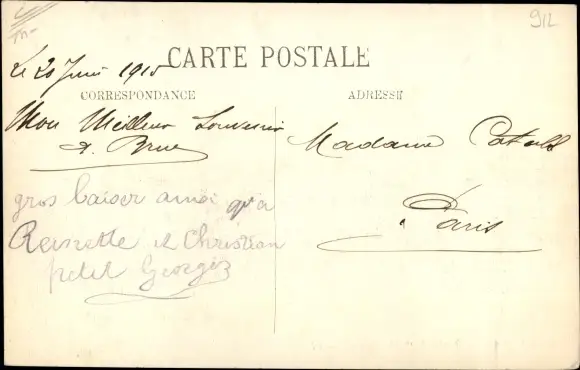 912
CARTE POSTALE
Le 20 Juin 1915
CORRESPONDANCE
ADRESSE
Mon Meilleur Souvenir
A. Brue
Madame
Paris
gros baiser ainsi qu'a
et Christian
petit Georges